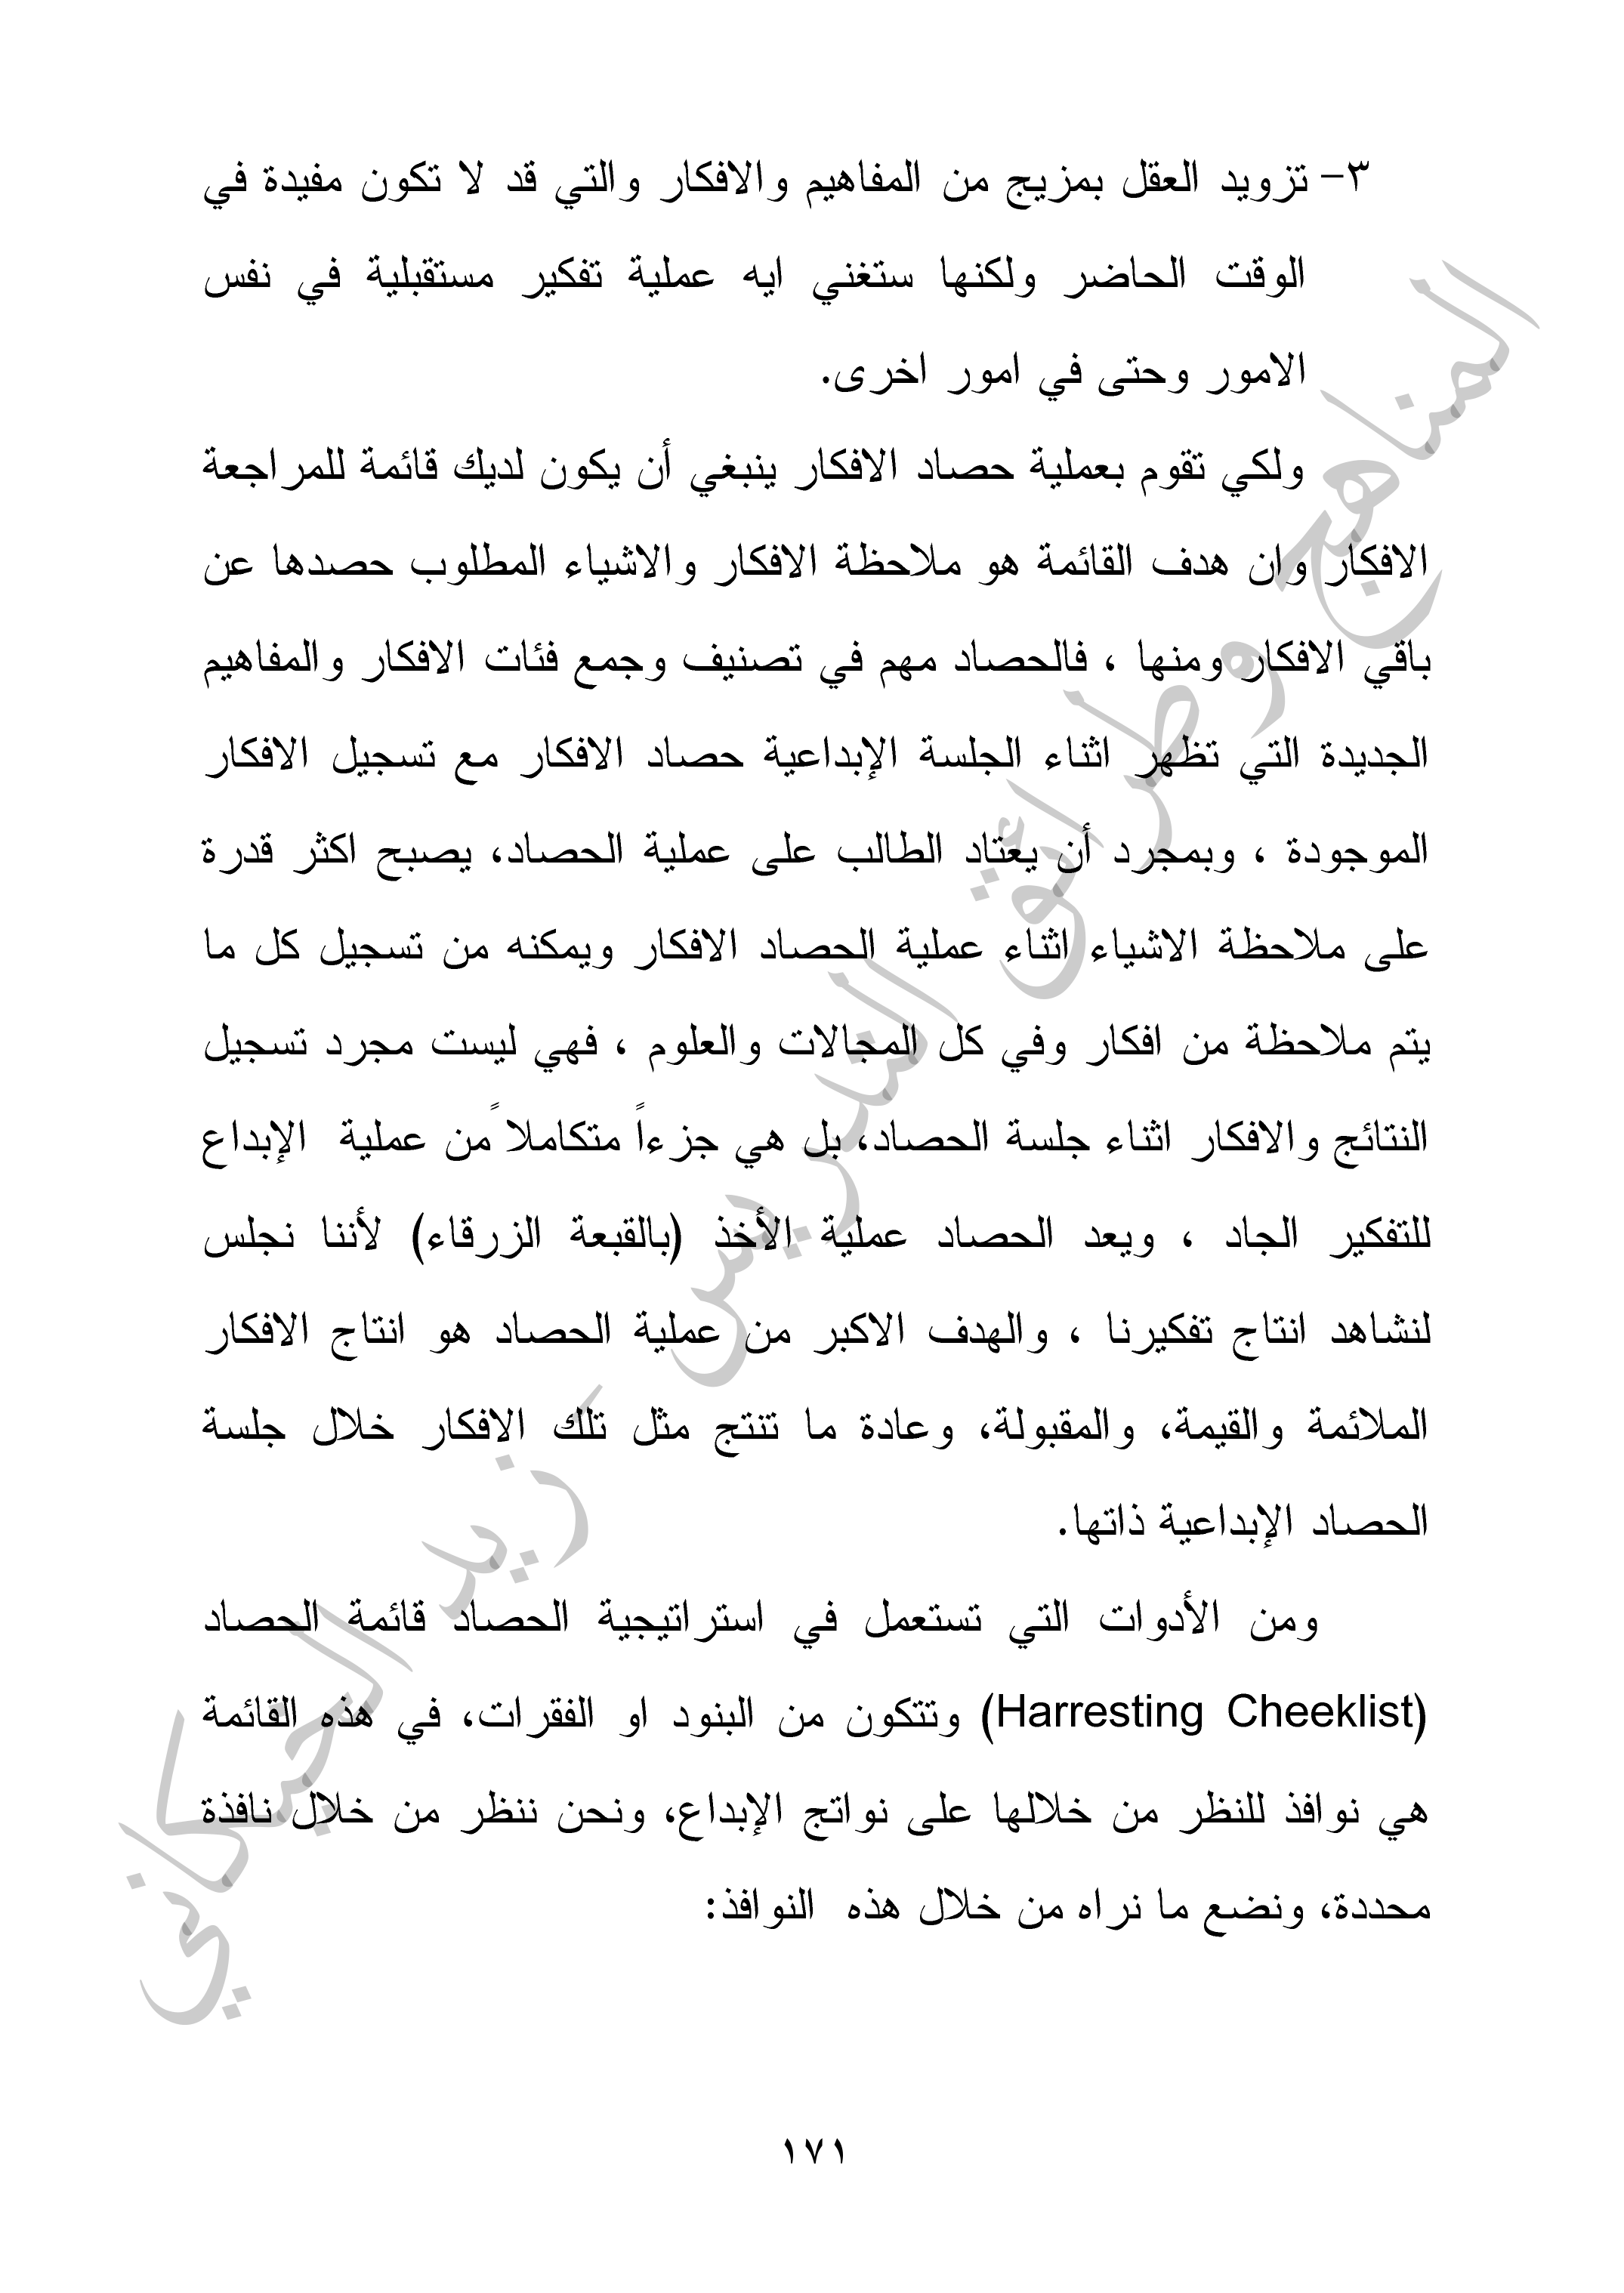 ٣- تزويد العقل بمزيج من المفاهيم والافكار والتي قد لا تكون مفيدة في
الوقت الحاضر ولكنها ستغني ايه عملية تفكير مستقبلية في نفس
الامور وحتى في امور اخرى.
ولكي تقوم بعملية حصاد الافكار ينبغي أن يكون لديك قائمة للمراجعة
الافكار وان هدف القائمة هو ملاحظة الافكار والاشياء المطلوب حصدها عن
باقي الافكار ومنها ، فالحصاد مهم في تصنيف وجمع فئات الافكار والمفاهيم
الجديدة التي تظهر اثناء الجلسة الإبداعية حصاد الافكار مع تسجيل الافكار
الموجودة ، وبمجرد أن يعتاد الطالب على عملية الحصاد، يصبح اكثر قدرة
على ملاحظة الاشياء اثناء عملية الحصاد الافكار ويمكنه من تسجيل كل ما
يتم ملاحظة من افكار وفي كل المجالات والعلوم ، فهي ليست مجرد تسجيل
النتائج والافكار اثناء جلسة الحصاد، بل هي جزءاً متكاملاً من عملية الإبداع
للتفكير الجاد ، ويعد الحصاد عملية الأخذ (بالقبعة الزرقاء) لأننا نجلس
لنشاهد انتاج تفكيرنا ، والهدف الاكبر من عملية الحصاد هو انتاج الافكار
الملائمة والقيمة، والمقبولة، وعادة ما تنتج مثل تلك الافكار خلال جلسة
الحصاد الإبداعية ذاتها.
ومن الأدوات التي تستعمل في استراتيجية الحصاد قائمة الحصاد
(Harresting Cheeklist) وتتكون من البنود او الفقرات، في هذه القائمة
هي نوافذ للنظر من خلالها على نواتج الإبداع، ونحن ننظر من خلال نافذة
محددة، ونضع ما نراه من خلال هذه النوافذ:
المناهج وطرائق التدريس - زيد الحبكاني
١٧١